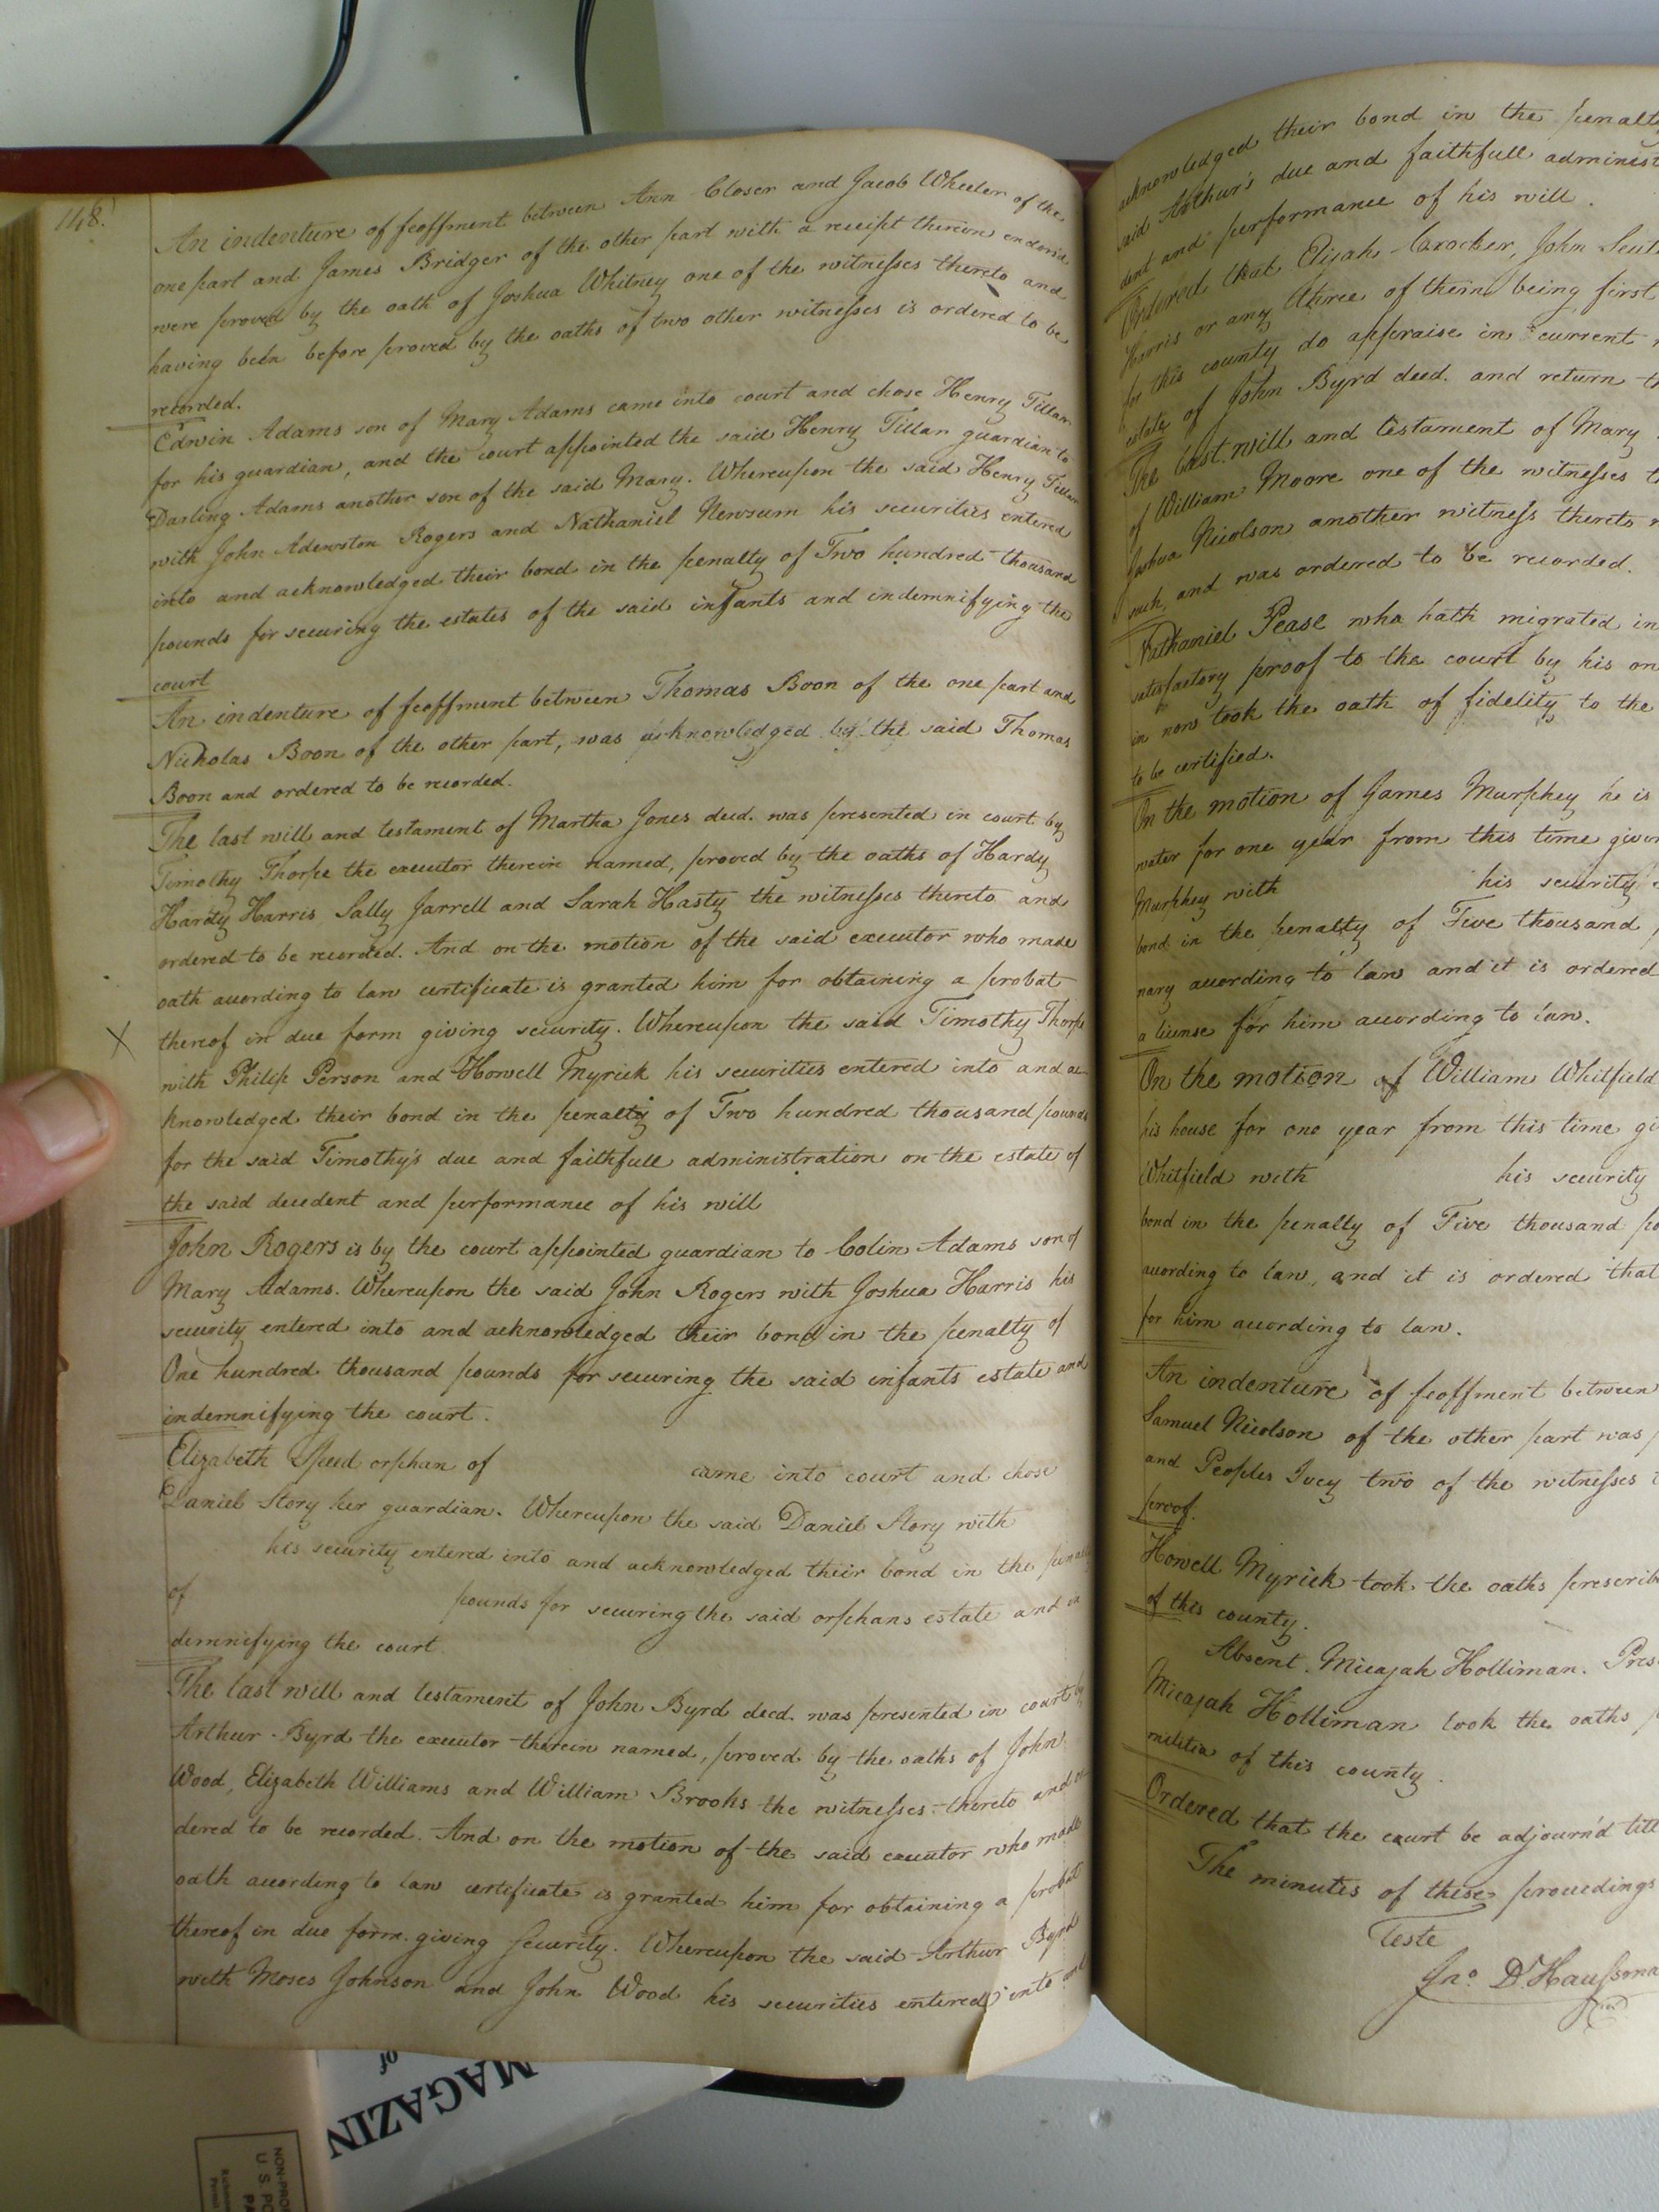 148.
An indenture of feoffment between Ann Closer and Jacob Wheeler of the
one part and James Bridger of the other part with a receipt therein endorsd
were proved by the oath of Joshua Whitney one of the witnesses thereto and
having been before proved by the oaths of two other witnesses is ordered to be
recorded.
Edwin Adams son of Mary Adams came into court and chose Henry Tillar
for his guardian, and the court appointed the said Henry Tillar guardian to
Darling Adams another son of the said Mary. Whereupon the said Henry Tillar
with John Rogers and Nathaniel Newsum his securities entered
into and acknowledged their bond in the penalty of Two hundred thousand
pounds for securing the estates of the said infants and indemnifying the
court
An indenture of feoffment between Thomas Boon of the one part and
Nicholas Boon of the other part, was acknowledged by the said Thomas
Boon and ordered to be recorded.
The last will and testament of Martha Jones decd. was presented in court by
Timothy Thorpe the executor therein named, proved by the oaths of Hardy
Hardy Harris Sally Jarrell and Sarah Hasty the witnesses thereto and
ordered to be recorded. And on the motion of the said executor who made
oath according to law certificate is granted him for obtaining a probat
X thereof in due form giving security. Whereupon the said Timothy Thorpe
with Philip Person and Howell Myrick his securities entered into and ac
knowledged their bond in the penalty of Two hundred thousand pounds
for the said Timothy's due and faithfull administration on the estate of
the said decedent and performance of his will
John Rogers is by the court appointed guardian to Colin Adams son of
Mary Adams. Whereupon the said John Rogers with Joshua Harris his
security entered into and acknowledged their bond in the penalty of
One hundred thousand pounds for securing the said infants estate and
indemnifying the court.
Elizabeth Speed orphan of came into court and chose
Daniel Story her guardian. Whereupon the said Daniel Story with
his security entered into and acknowledged their bond in the penalty
of pounds for securing the said orphans estate and in
demnifying the court
The last will and testament of John Byrd decd. was presented in court by
Arthur Byrd the executor therein named, proved by the oaths of John
Wood, Elizabeth Williams and William Brooks the witnesses thereto and or
dered to be recorded. And on the motion of the said executor who made
oath according to law certificate is granted him for obtaining a probat
thereof in due form giving security. Whereupon the said Arthur Byrd
with Moses Johnson and John Wood his securities entered into and
acknowledged their bond in the penalty
said Arthur's due and faithfull administ
dent and performance of his will.
Ordered that Elijah Crocker, John
Harris or any three of them being first
for this county do appraise in current
estate of John Byrd decd. and return
The last will and testament of Mary
of William Moore one of the witnesses
Joshua Nicolson another witness thereto
such, and was ordered to be recorded.
Nathaniel Pease who hath migrated in
satisfactory proof to the court by his
in now took the oath of fidelity to the
to be certified.
On the motion of James Murphey he is
water for one year from this time givin
Murphey with his security
bond in the penalty of Five thousand
nary according to law and it is ordered
a license for him according to law.
On the motion of William Whitfield
his house for one year from this time gi
Whitfield with his security
bond in the penalty of Five thousand po
according to law, and it is ordered that
for him according to law.
An indenture of feoffment between
Samuel Nicolson of the other part was
and Peoples Ivey two of the witnesses
proof.
Howell Myrick took the oaths prescrib
of this county.
Absent. Micajah Holliman. Pres
Micajah Holliman took the oaths
militia of this county.
Ordered that the court be adjourn'd till
The minutes of these proceedings
Teste
Jno. D'Haussona
MAGAZIN
of
NON-PROF
U. S. PO
PA